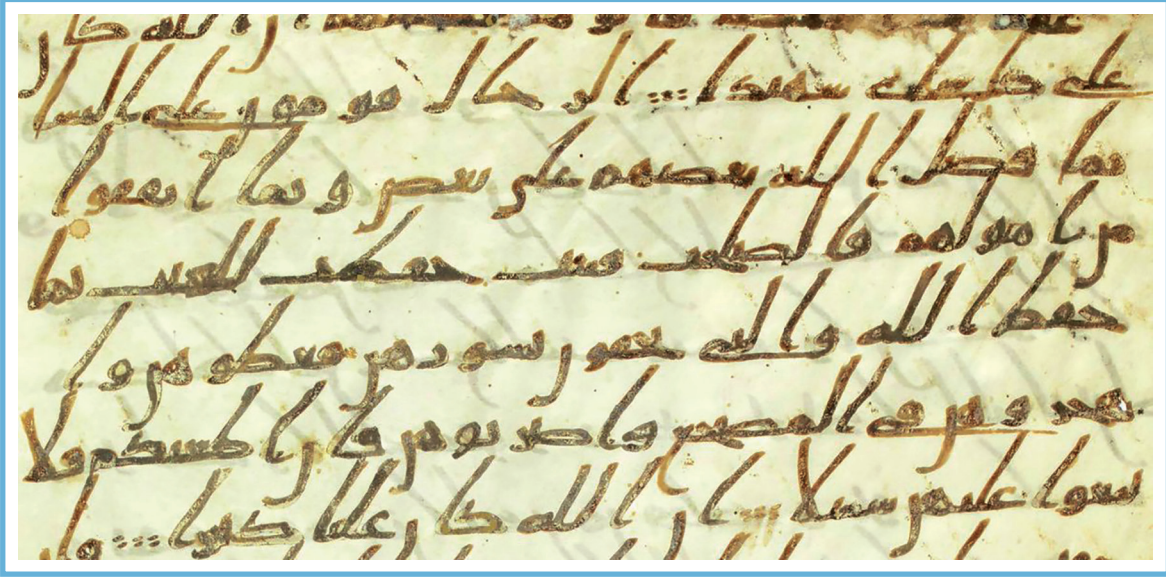 ن الله كا
على كل شاى شهيدا الرجال قومون على النسا
بما فضل الله بعضهم على بعض وبما انفقوا
من امولهم فالصلحت قنتت حفظت للغيب بما
حفظ الله والتى تخفون نشوزهن فعظوهن وا
هجروهن فى المضجع واضربوهن فان اطعنكم فلا
تبغوا عليهن سبيلا ان الله كان عليا كبيرا وان